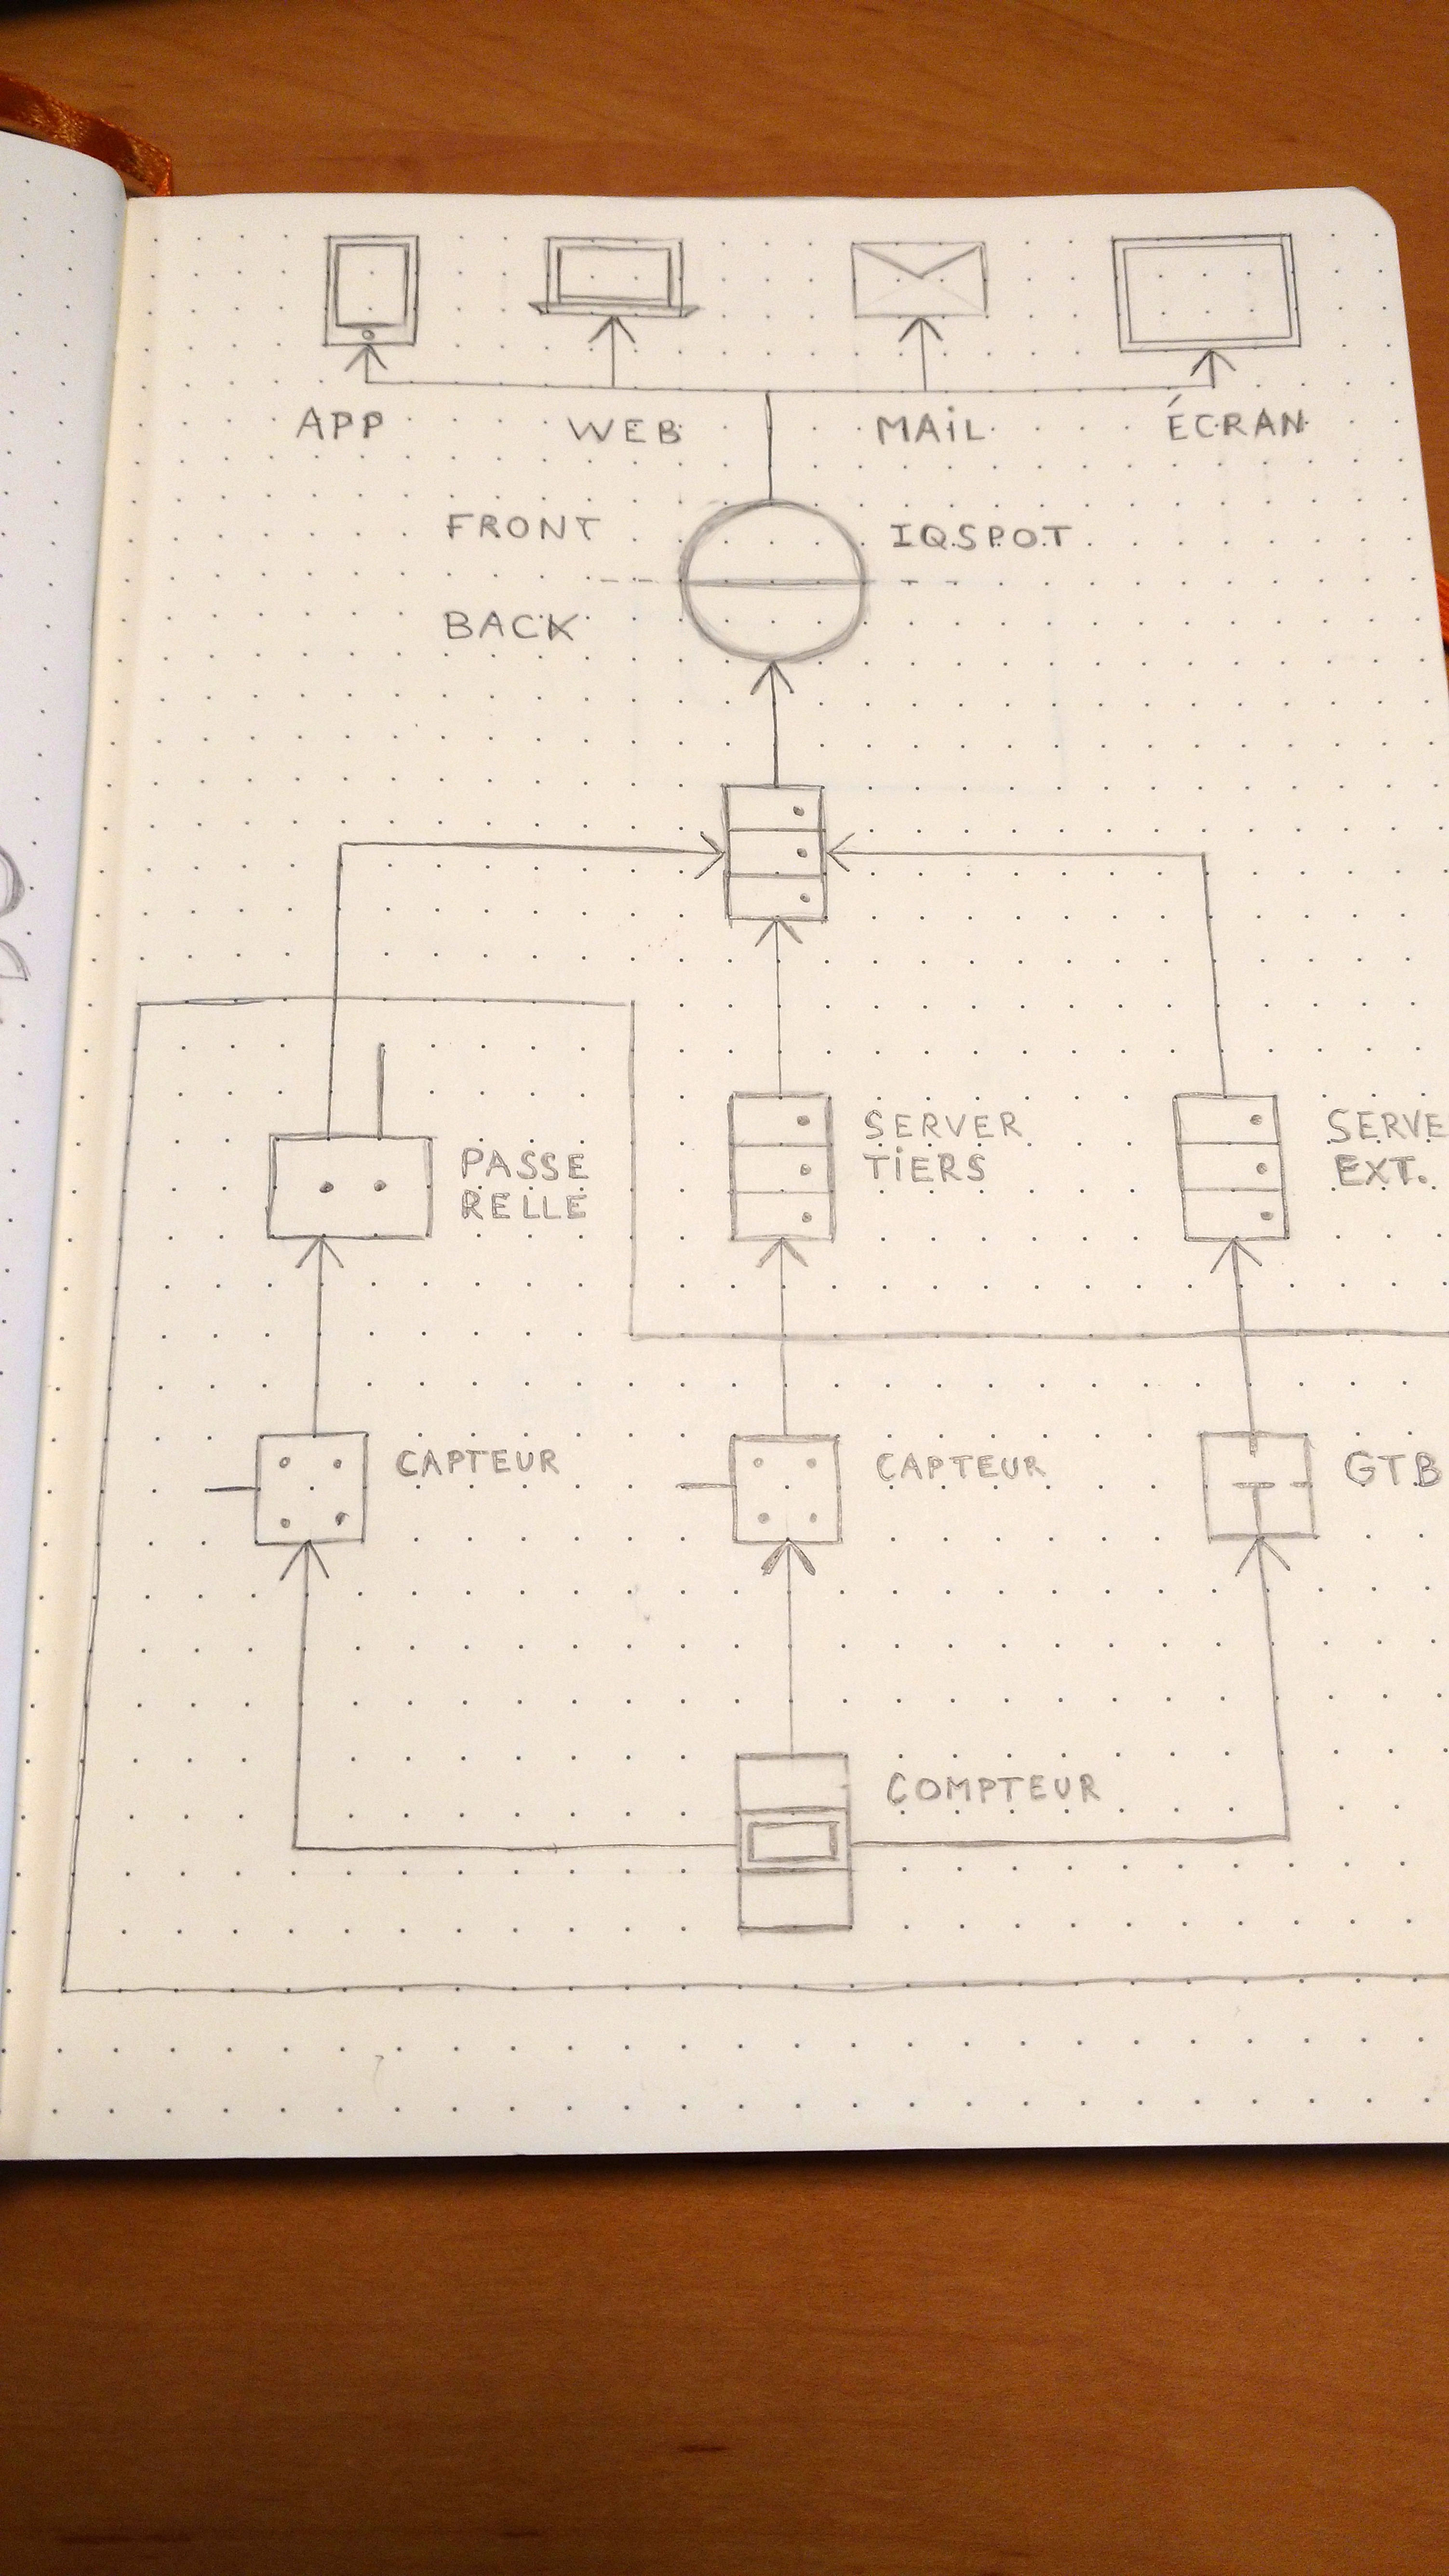 APP
WEB
MAiL
ÉCRAN
FRONT
IQSPOT
BACK
PASSE
RELLE
SERVER
TiERS
SERVE
EXT.
CAPTEUR
CAPTEUR
GTB
COMPTEUR